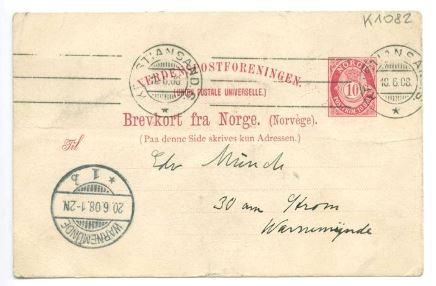 K1082
VERDENSPOSTFORENINGEN.
(UNION POSTALE UNIVERSELLE.)
Brevkort fra Norge. (Norvège).
(Paa denne Side skrives kun Adressen.)
NORGE
10
KRISTIANSANDS
18.6.08.
KRISTIANSANDS
18.6.08.
Til
Edv Munch
30 am Strom
Warnemünde
* 1 b
20.6.08.1-2N
WARNEMÜNDE